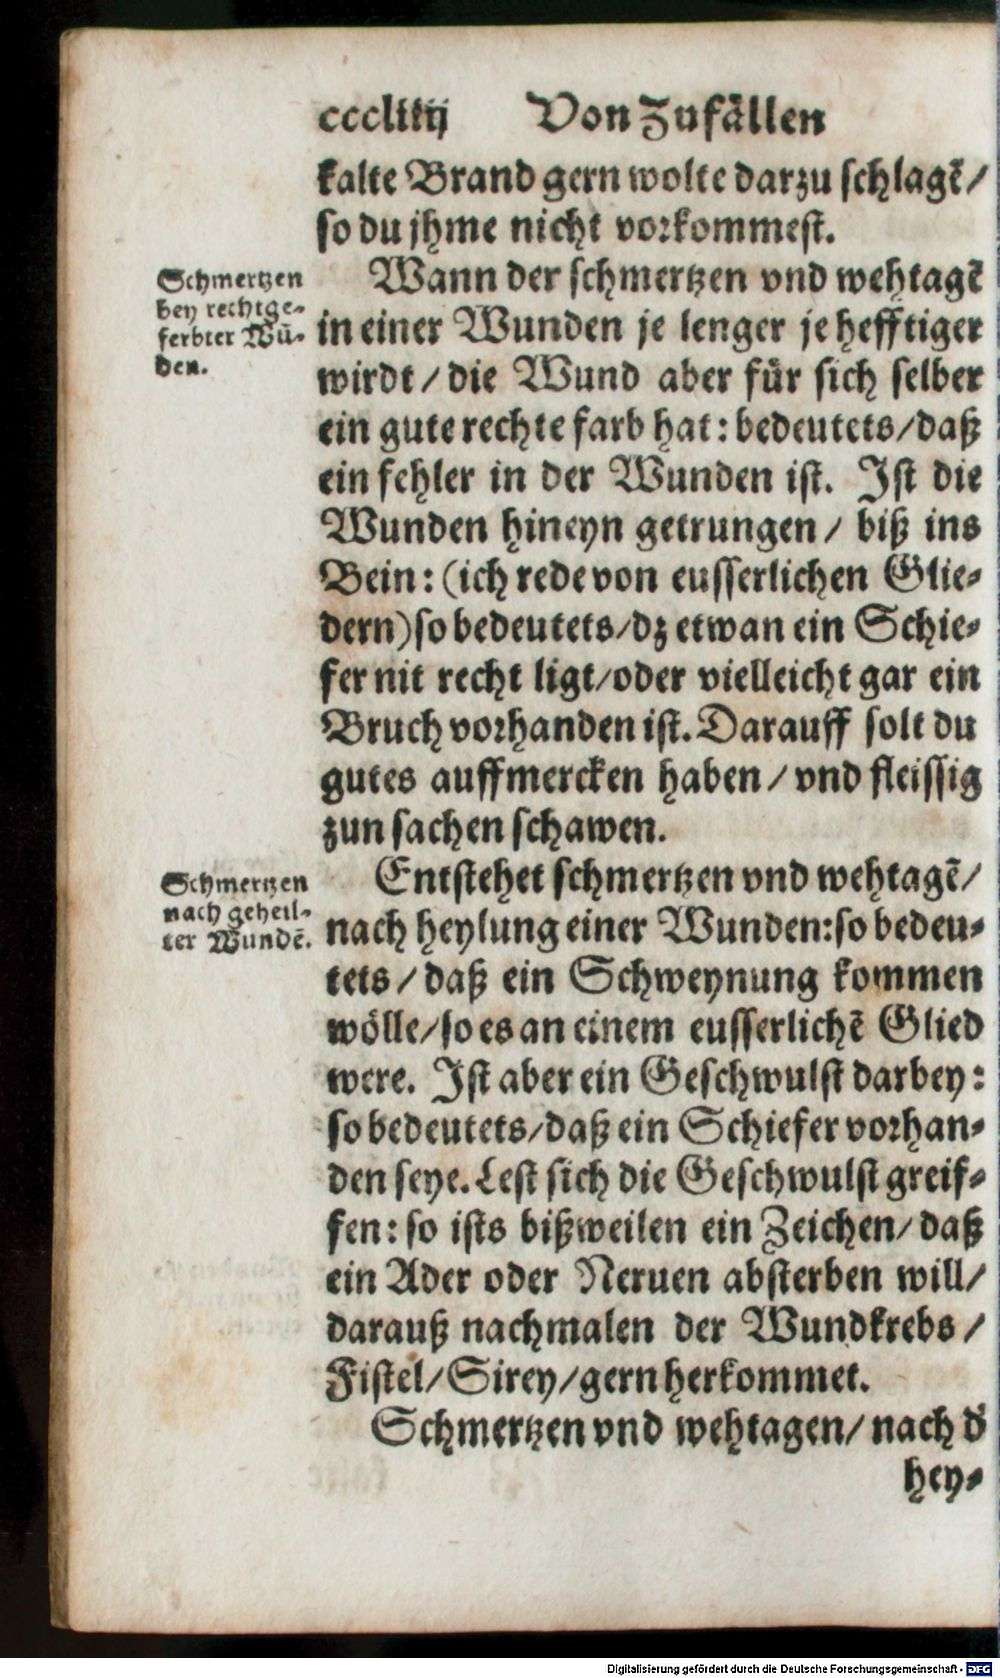 Von Zufällen
kalte Brand gern wolte darzu schlagẽ/
so du jhme nicht vorkommest.
Schmertzen
bey rechtge-
ferbter Wũ-
den.
Wann der schmertzen vnd wehtagẽ
in einer Wunden je lenger je hefftiger
wirdt/ die Wund aber für sich selber
ein gute rechte farb hat: bedeutets/daß
ein fehler in der Wunden ist. Ist die
Wunden hineyn getrungen/ biß ins
Bein: (ich rede von eusserlichen Glie-
dern) so bedeutets/dz etwan ein Schie-
fer nit recht ligt/oder vielleicht gar ein
Bruch vorhanden ist. Darauff solt du
gutes auffmercken haben/ vnd fleissig
zun sachen schawen.
Schmertzen
nach geheil-
ter Wundẽ.
Entstehet schmertzen vnd wehtagẽ/
nach heylung einer Wunden: so bedeu-
tets/ daß ein Schweynung kommen
wölle/so es an einem eusserlichẽ Glied
were. Ist aber ein Geschwulst darbey:
so bedeutets/daß ein Schiefer vorhan-
den seye. Lest sich die Geschwulst greif-
fen: so ists bißweilen ein Zeichen/ daß
ein Ader oder Neruen absterben will/
darauß nachmalen der Wundkrebs/
Fistel/Sirey/gern herkommet.
Schmertzen vnd wehtagen/ nach d̃
hey-
Digitalisierung gefördert durch die Deutsche Forschungsgemeinschaft - DFG